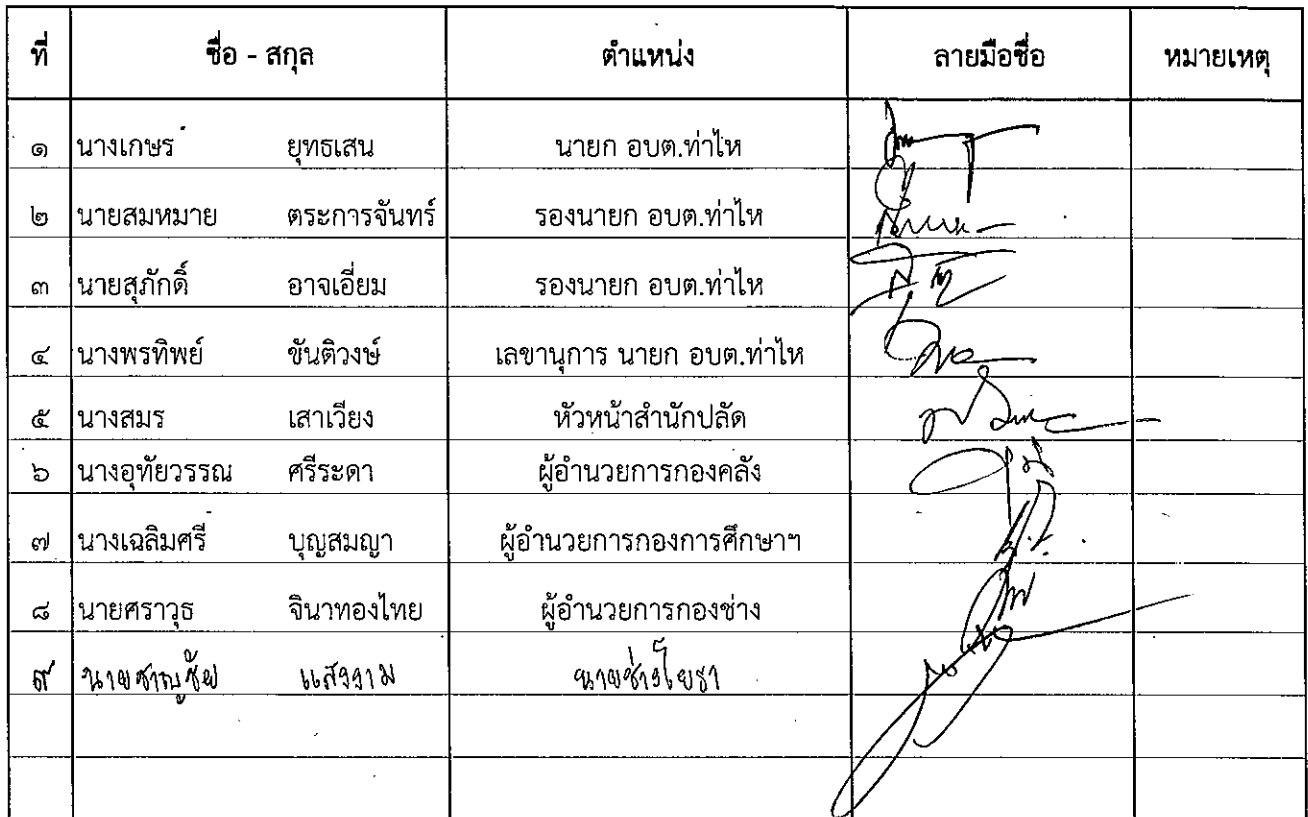 ที่ ชื่อ - สกุล ตำแหน่ง ลายมือชื่อ หมายเหตุ
๑ นางเกษร ยุทธเสน นายก อบต.ท่าไห
๒ นายสมหมาย ตระการจันทร์ รองนายก อบต.ท่าไห
๓ นายสุภักดิ์ อาจเอี่ยม รองนายก อบต.ท่าไห
๔ นางพรทิพย์ ขันติวงษ์ เลขานุการ นายก อบต.ท่าไห
๕ นางสมร เสาเวียง หัวหน้าสำนักปลัด
๖ นางอุทัยวรรณ ศรีระดา ผู้อำนวยการกองคลัง
๗ นางเฉลิมศรี บุญสมญา ผู้อำนวยการกองการศึกษาฯ
๘ นายศราวุธ จินาทองไทย ผู้อำนวยการกองช่าง
๙ นายชาญชัย แสงงาม นายช่างโยธา